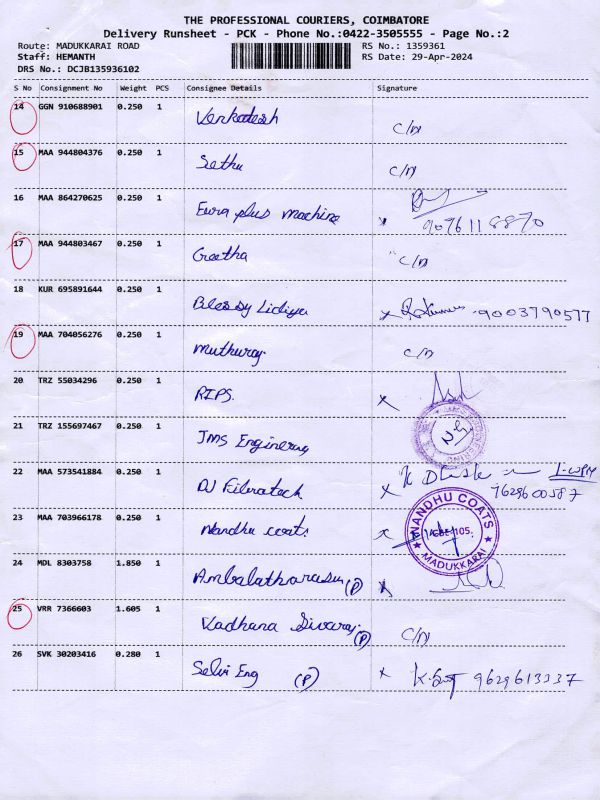 THE PROFESSIONAL COURIERS, COIMBATORE
Delivery Runsheet - PCK - Phone No.:0422-3505555 - Page No.:2
Route: MADUKKARAI ROAD RS No.: 1359361
Staff: HEMANTH RS Date: 29-Apr-2024
DRS No.: DCJB135936102
S No Consignment No Weight PCS Consignee Details Signature
14 GGN 910688901 0.250 1 Venkadesh C/D
15 MAA 944804376 0.250 1 Sethu C/D
16 MAA 864270625 0.250 1 Euro plus machine x 9076118870
17 MAA 944803467 0.250 1 Geetha C/D
18 KUR 695891644 0.250 1 Blessy Lidiya x 9003790577
19 MAA 704056276 0.250 1 Muthuraj C/D
20 TRZ 55034296 0.250 1 RIPS. x
21 TRZ 155697467 0.250 1 JMS Enginering
22 MAA 573541884 0.250 1 x 7629600587
23 MAA 703966178 0.250 1 Nandhu coats x NANDHU COATS 105. MADUKKARAI
24 MDL 8303758 1.850 1 Ambalatharasu (P) x
25 VRR 7366603 1.605 1 Vadhana Sivaraj (P) C/D
26 SVK 30203416 0.280 1 Selvi Eng (P) x 9629613337